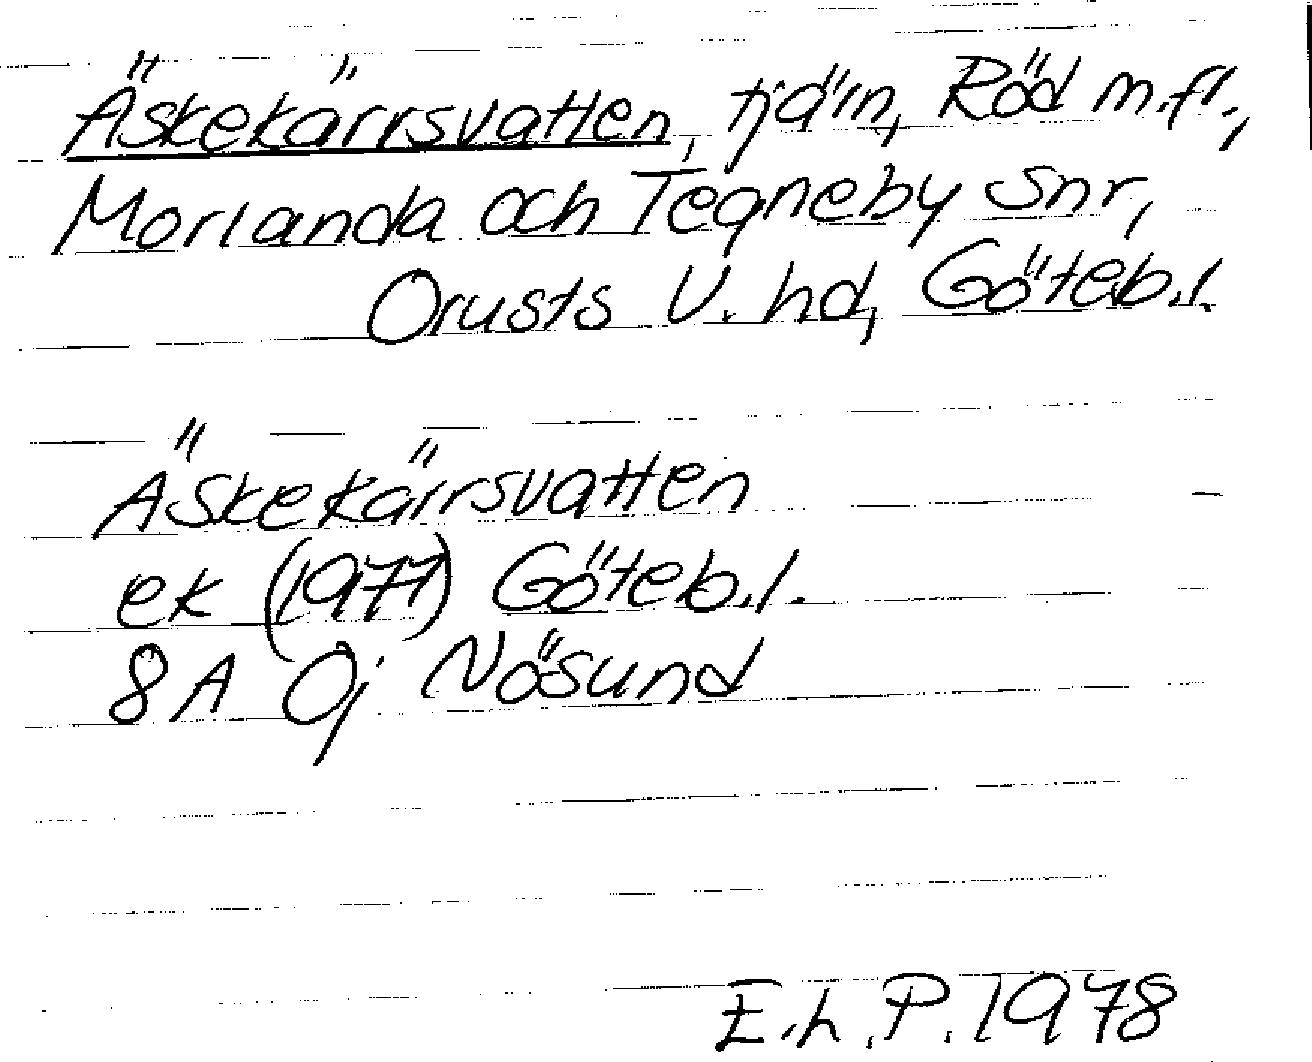 Äskekärrsvatten, tjärn, Röd m.fl.,
Morlanda och Tegneby snr,
Orusts V. hd, Göteb.l.
Äskekärrsvatten
ek (1977) Göteb.l.
8A 0j Nösund
E.h.P. 1978